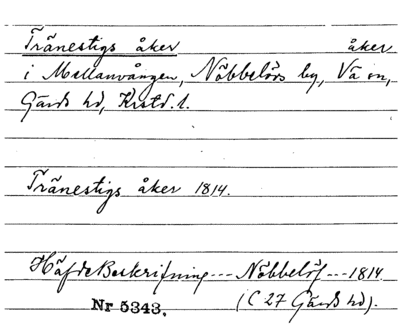 Tränestigs åker åker
i Mellanvången, Nöbbelövs by, Vä sn,
Gärds hd, Krstd. l.
Tränestigs åker 1814.
Häfde Beskrifning --- Nöbbelöf --- 1814
Nr 5343. (C 27 Gärds hd).